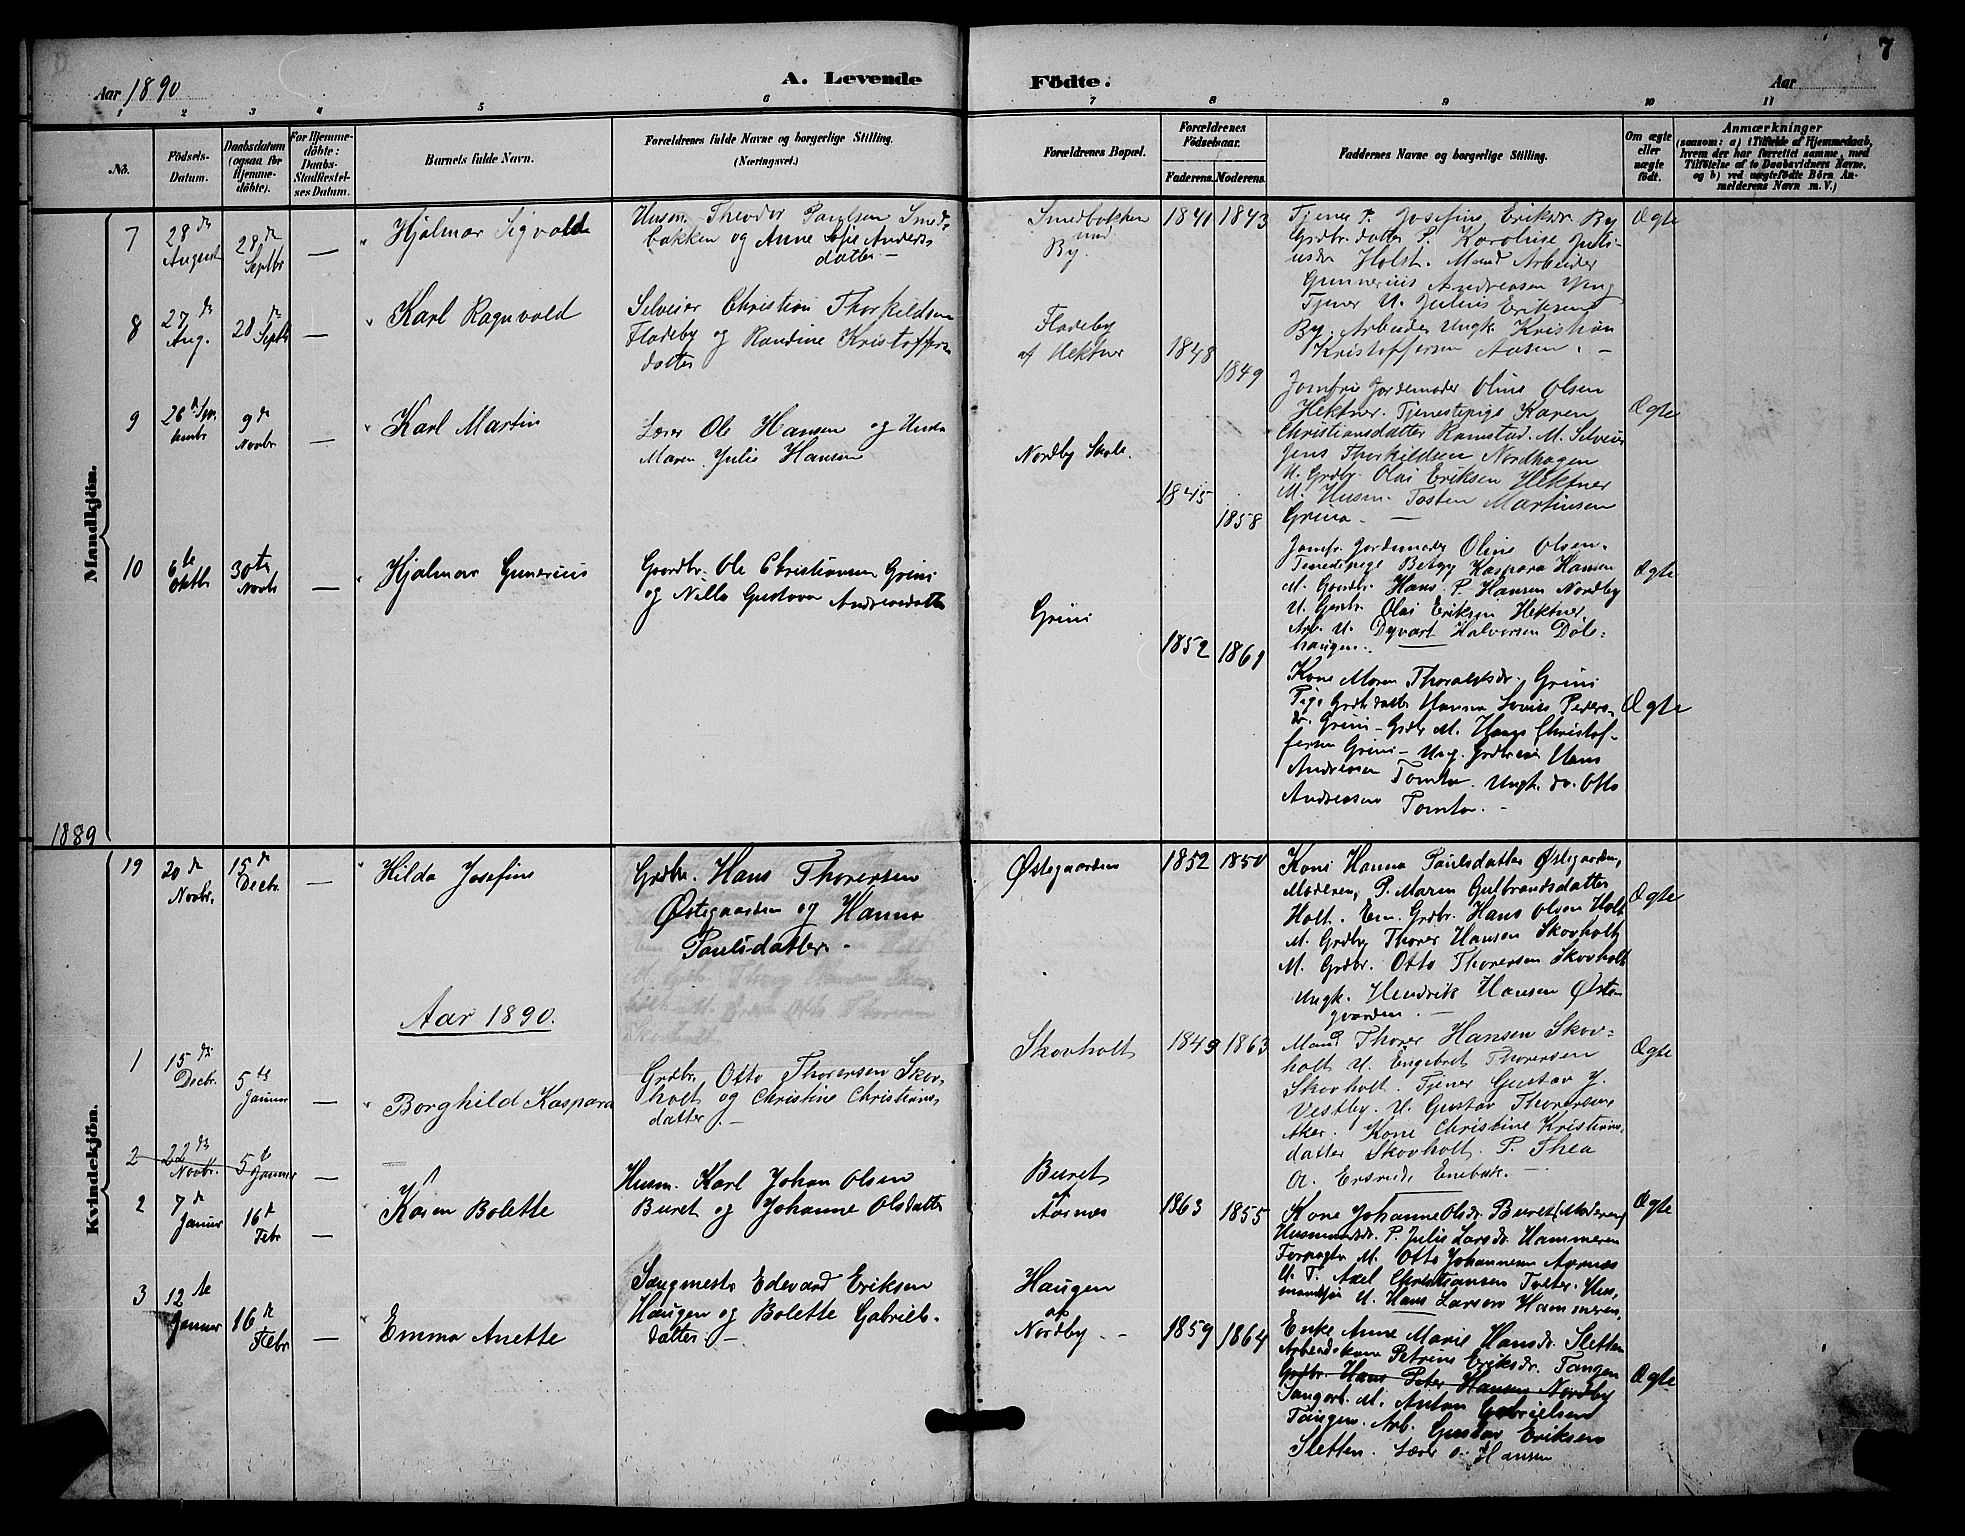 7
Aar 1890
A. Levende Födte.
Aar
1 2 3 4 5 6 7 8 9 10 11
No.
Födsels-Datum.
Daabsdatum (ogsaa for Hjemme-döbte).
For Hjemme-döbte: Daabs-Stadfestel-ses Datum.
Barnets fulde Navn.
Forældrenes fulde Navne og borgerlige Stilling.
(Næringsvei.)
Forældrenes Bopæl.
Forældrenes Födselsaar.
Faderens. Moderens.
Faddernes Navne og borgerlige Stilling.
Om ægte eller uægte födt.
Anmærkninger
(saasom: a) i Tilfælde af Hjemmedaab,
hvem der har forrettet samme, med
Tilföielse af to Daabsvidners Navne,
og b) ved uægtefödte Börn An-
melderens Navn m. V.)
Mandkjön.
7
28de August
28de Septbr
—
Hjalmar Sigvald
Husm. Theodor Paulsen Smed-
bakken og Anne Sofie Anders-
datter —
Smedbakken
und
By.
1841 1843
Tjener P. Josefine Eriksdr. By
Grdbr.datter P. Karoline
Holst. Mand Arbeider
Gunnerius Andreasen
Tjener U. Julius Eriksen
By. Arbeider Ungk. Kristian
Kristoffersen Aasen. —
Ægte
8
27de Aug.
28de Septb
—
Karl Ragnvald
Selveier Christian Thorkildsen
Fladeby og Randine Kristoffers-
datter
Fladeby
af Hektner
1848 1849
Jomfru Jordemoder Oline Olsen
Hektner. Tjenestepige Karen
Christiansdatter Ramstad. M. Selveier
Jens Thorkildsen Nordhagen
U. Grdbr. Olai Eriksen Hektner
M. Husm. Tosten Martinsen
Grina. —
Ægte
9
9de Novbr
—
Karl Martin
Lærer Ole Hansen og
Maren Julie Hansen
Nordby Skole.
1845 1858
Jomfr Jordemoder Oline Olsen.
Tjenestepige Betzy Kaspara Hansen
M. Gaardbr. Hans P. Hansen Nordby
U. Grdbr. Olai Eriksen Hektner
Arb. U. Dyvart Halvorsen Döle-
haugen. —
Ægte
10
6te Oktb
30te Novbr
—
Hjalmar Gunerius
Gaardbr. Ole Christiansen Grini
og Nilla Gustava Andreasdatter
Grini
1852 1861
Kone Maren Thoraldsdr. Grini
Pige Grdb.datter Hanna Lovise Peders-
dr. Grini — Grdbr M. Hans Christof-
fersen Grini — Ung. Hans
Andreasen Tomter. Ungk. do. Otto
Andreasen Tomter. —
Ægte
1889
Kvindekjön.
19
20de Novbr.
15de Decbr.
—
Hilda Josefine
Grdbr. Hans Thorersen
Östegaarden og Hanna
Paulsdatter. —
Östegaarden
1852 1850
Kone Hanna Paulsdatter Östegaarden,
Moderen, P. Maren Gulbrandsdatter
Holt. Em. Grdbr. Hans Olsen Holt
M. Grdbr Thorer Hansen Skovholt
M. Grdbr. Otto Thorersen Skovholt
Ungk. Hendrik Hansen Öste-
gaarden. —
Ægte
Aar 1890.
1
15de Decbr.
5te Januar
—
Borghild Kaspara
Grdbr. Otto Thorersen Skov-
holt og Christine Christians-
datter. —
Skovholt
1849 1863
Mand Thorer Hansen Skov-
holt U. Engebret Thorersen
Skovholt. Tjener Gustav J.
Vestby. U. Gustav Thorersen
Aker. Kone Christine Kristians-
datter Skovholt. P. Thea
O. Enebak. —
Ægte
2 22de Novbr. 5te Januar —
2
7de Januar
16de Febr
—
Karen Bolette
Husm. Karl Johan Olsen
Buret og Johanne Olsdatter
Buret
af
Aarnæs
1863 1855
Kone Johanne Olsdr. Buret (Moderen)
Husmandsdr. P. Julie Larsdr. Hammeren
Forpagter M. Otto Johannesen Aarnæs
U. T. Axel Christiansen Tofter. Hus-
mandssön U. Hans Larsen Hammeren.
Ægte
3
12te Januar
16de Febr
—
Emma Anette
Saugmester Edevard Eriksen
Haugen og Bolette Gabriels-
datter —
Haugen
af
Nordby. —
1859 1864
Enke Anne Marie Hansdr. Sletten
Arbeiderkone Petrine Eriksdr. Tangen
Grdbr. Hans Peter Hansen Nordby
Saugarb. M. Anton Gabrielsen
Tangen. Arb. Gustav Eriksen
Sletten. Lærer O. Hansen
Ægte